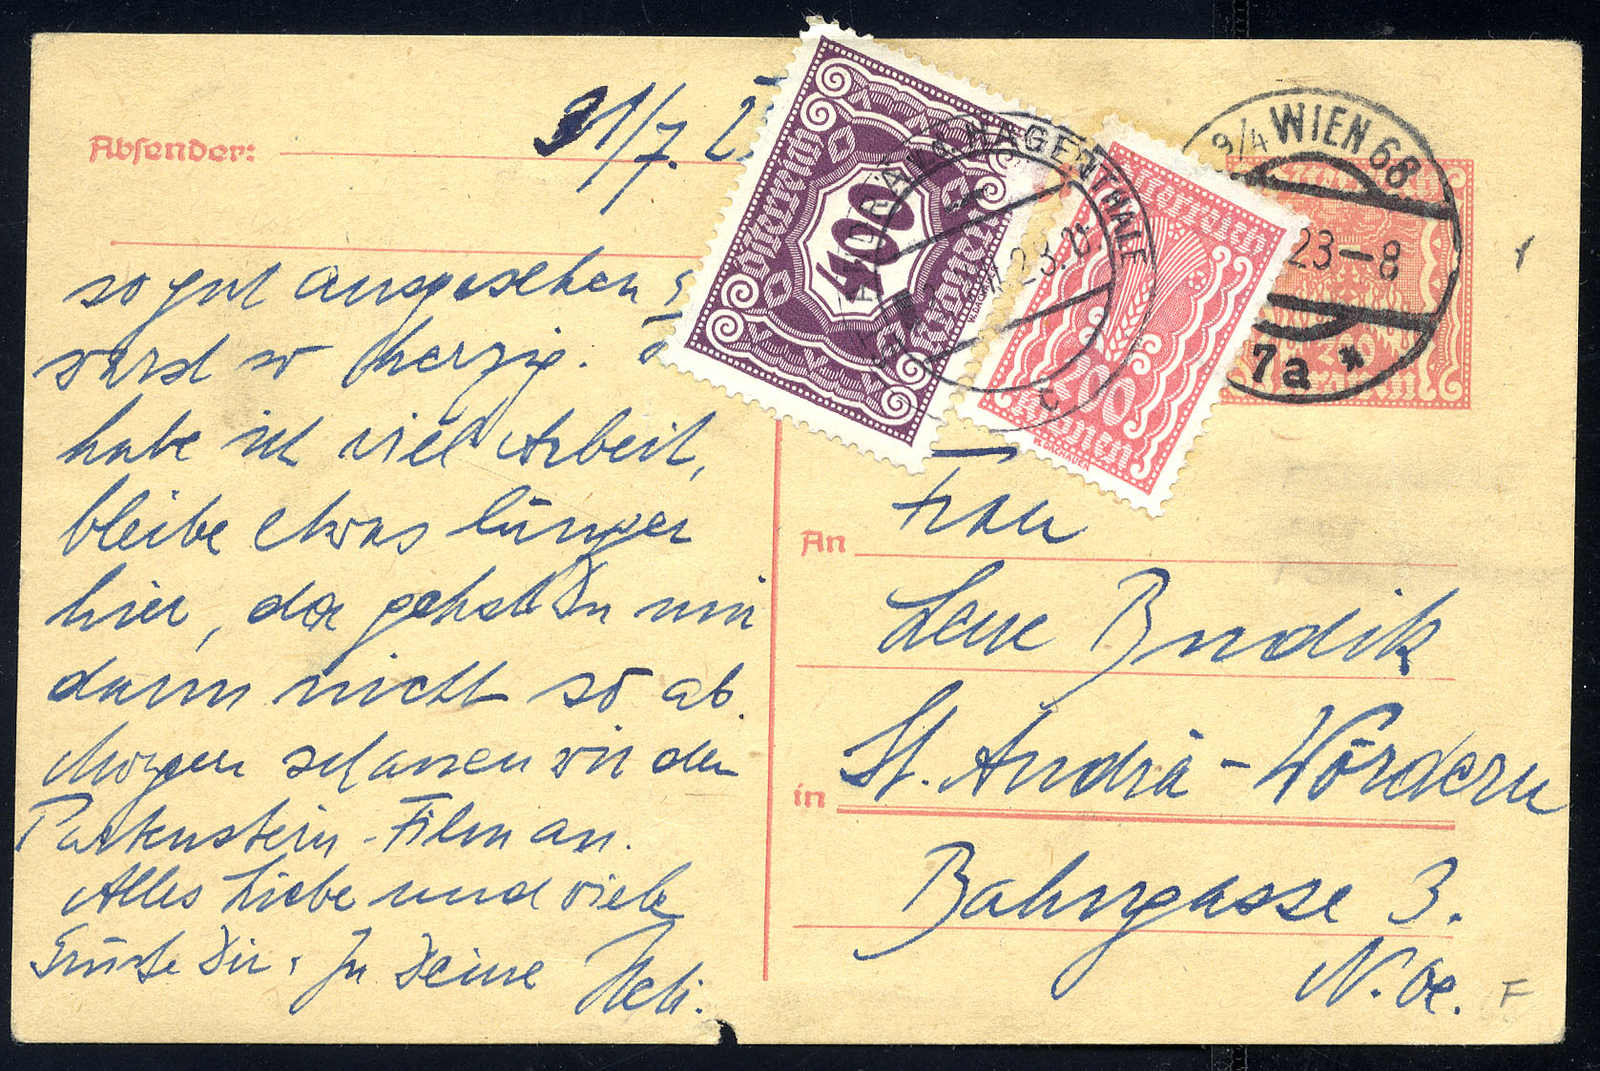 Absender:
31/7. 23
so gut ausgesehen
warst so herzig.
habe ich viel Arbeit,
bleibe etwas länger
hier, da gehst Du mir
dann nicht so ab.
Morgen schauen wir den
Partenstein-Film an.
Alles Liebe und viele
Grüße Dir. In Deine Heli.
400
Österreich
Kronen
HAGENTHALE
Österreich
200
Kronen
R. DACHAUER
3/4 WIEN 68
23-8
7a *
An Frau
Lene Budik
in St. Andrä-Wördern
Bahngasse 3.
N. Oe.
F